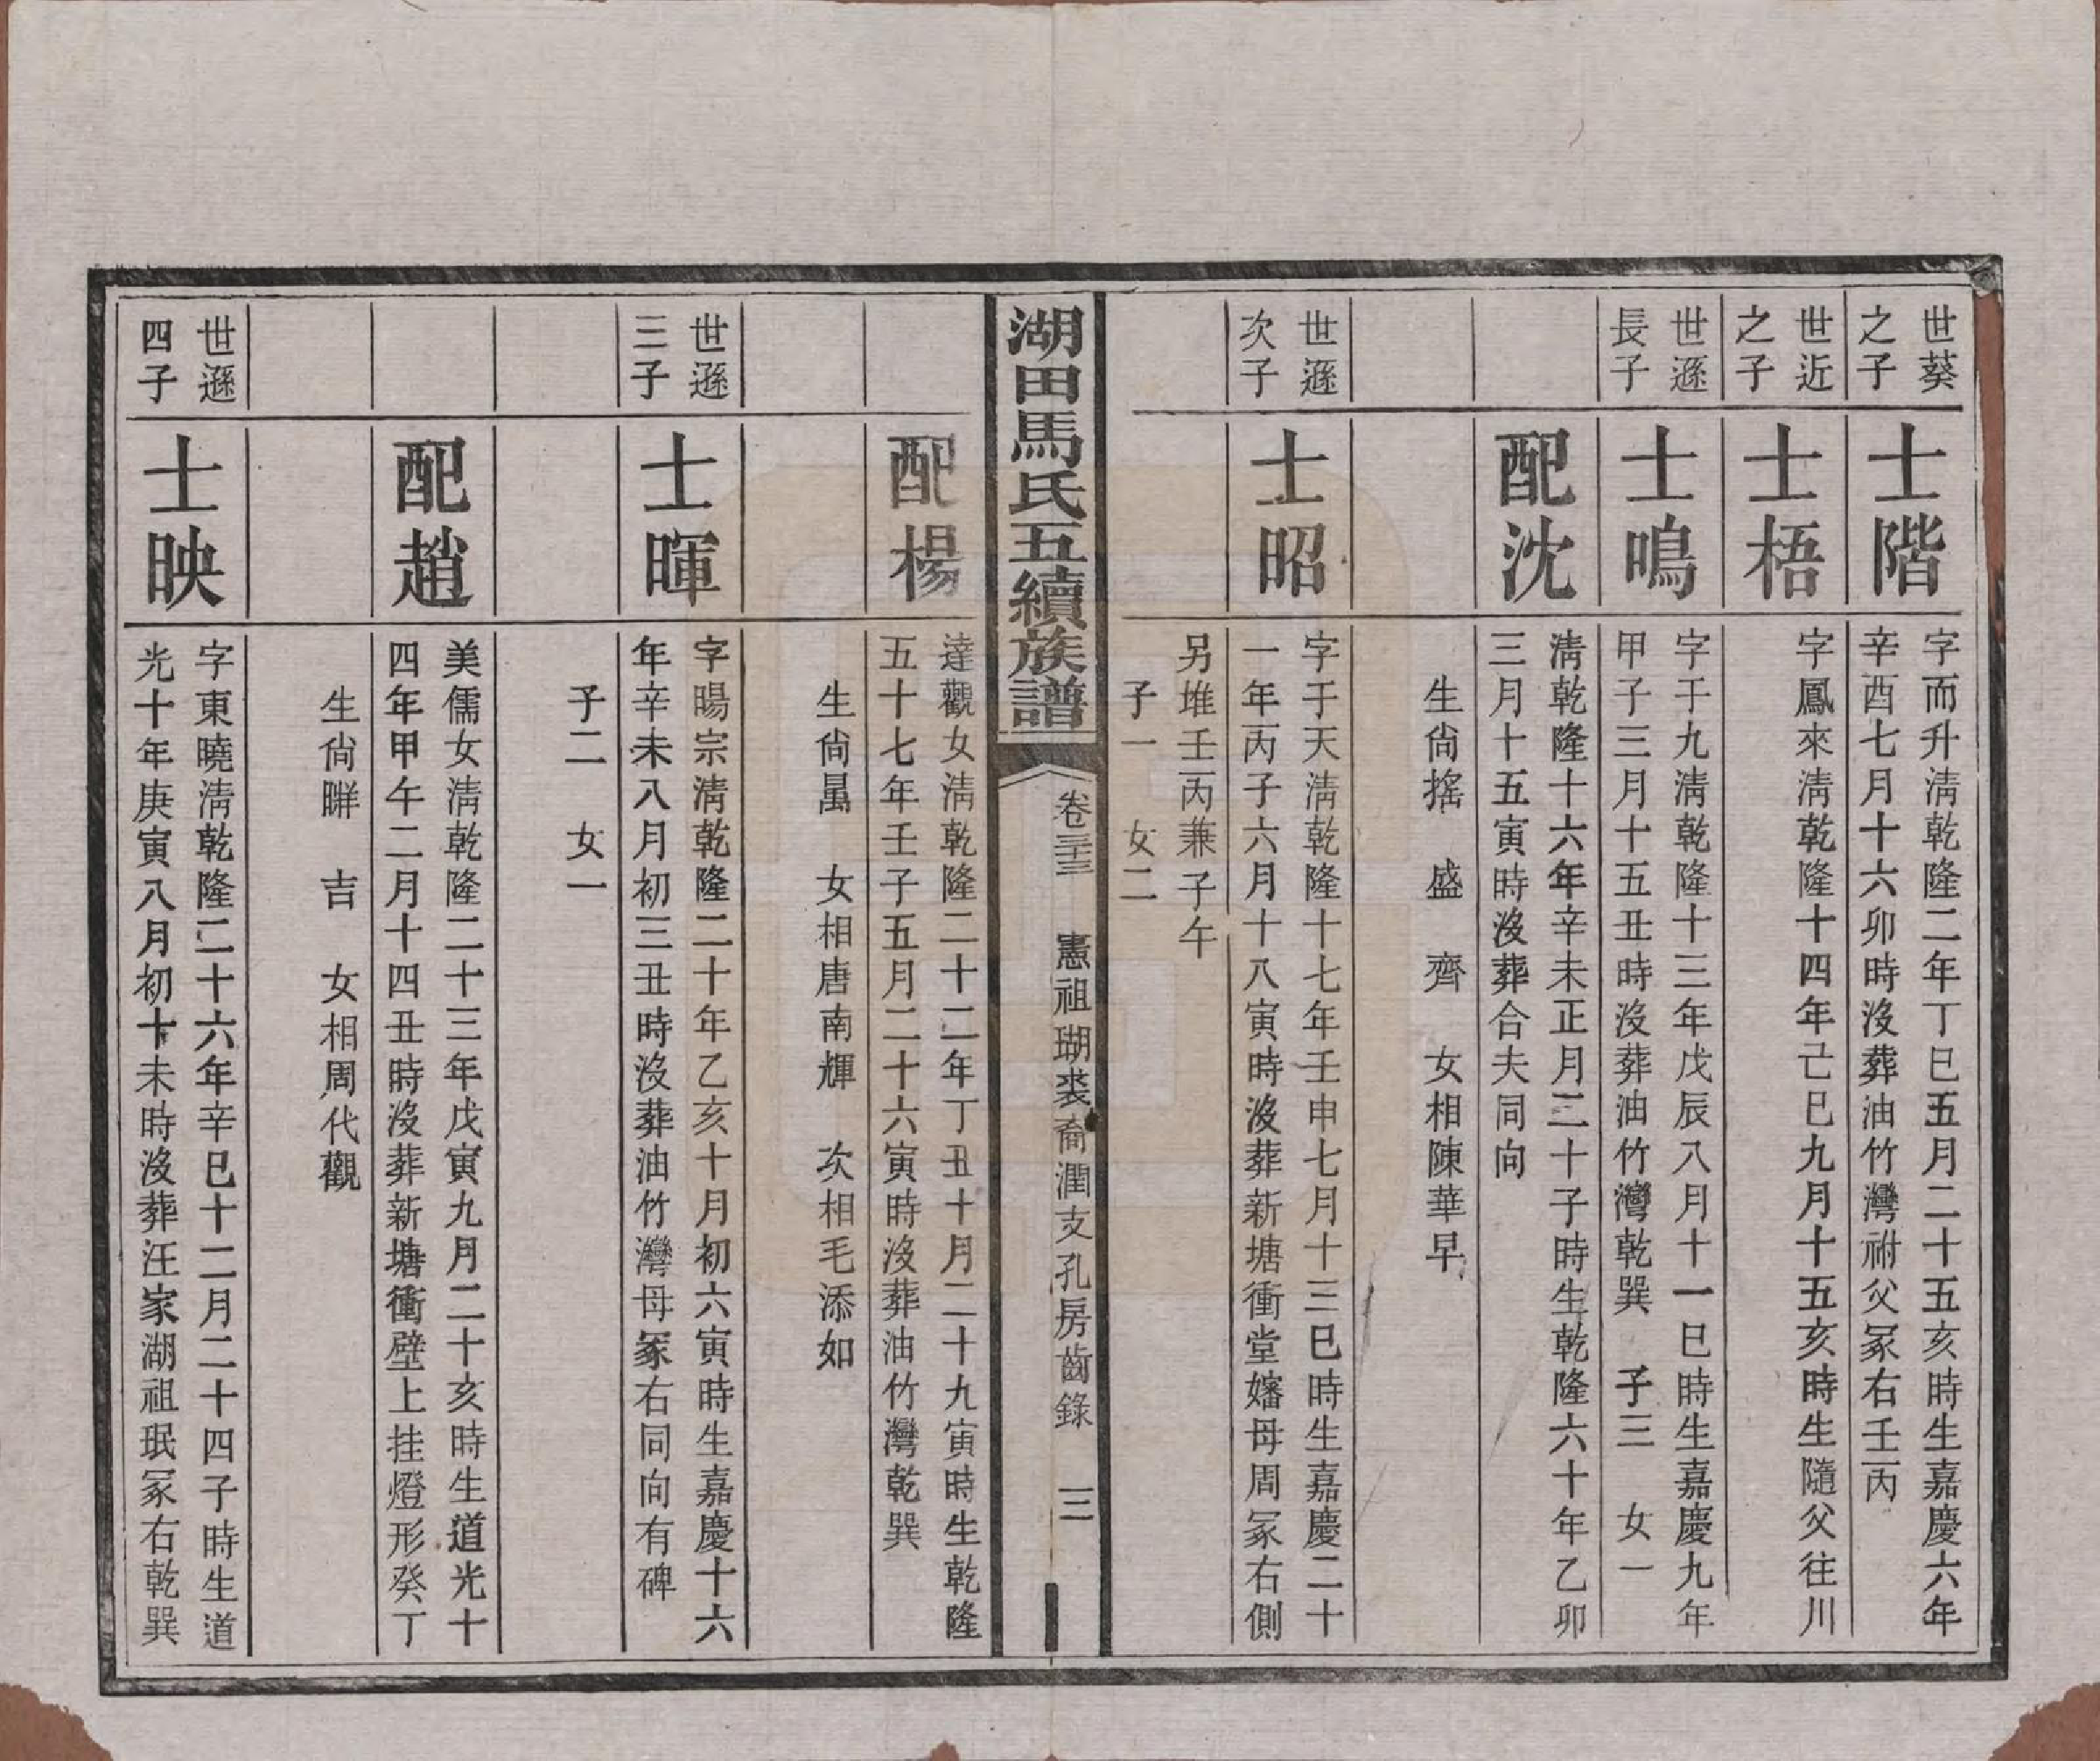 世葵
之子
士階
字而升淸乾隆二年丁巳五月二十五亥時生嘉慶六年
辛酉七月十六卯時沒葬油竹灣祔父冢右壬丙
世近
之子
士梧
字鳳來淸乾隆十四年己巳九月十五亥時生隨父往川
世遜
長子
士鳴
字于九淸乾隆十三年戊辰八月十一巳時生嘉慶九年
甲子三月十五丑時沒葬油竹灣乾巽　子三　女一
配沈
淸乾隆十六年辛未正月二十子時生乾隆六十年乙卯
三月十五寅時沒葬合夫同向
生尙搖　盛　齊　女相陳華早
世遜
次子
士昭
字于天淸乾隆十七年壬申七月十三巳時生嘉慶二十
一年丙子六月十八寅時沒葬新塘衝堂嬸母周冢右側
另堆壬丙兼子午
子一　女二
湖田馬氏五續族譜
卷三十三　憲祖瑚裘裔潤支孔房齒錄　三
配楊
達觀女淸乾隆二十二年丁丑十月二十九寅時生乾隆
五十七年壬子五月二十六寅時沒葬油竹灣乾巽
生尙暠　女相唐南輝　次相毛添如
世遜
三子
士暉
字暘宗淸乾隆二十年乙亥十月初六寅時生嘉慶十六
年辛未八月初三丑時沒葬油竹灣母冢右同向有碑
子二　女一
配趙
美儒女淸乾隆二十三年戊寅九月二十亥時生道光十
四年甲午二月十四丑時沒葬新塘衝壁上挂燈形癸丁
生尙　吉　女相周代觀
世遜
四子
士映
字東曉淸乾隆二十六年辛巳十二月二十四子時生道
光十年庚寅八月初十未時沒葬汪家湖祖珉冢右乾巽